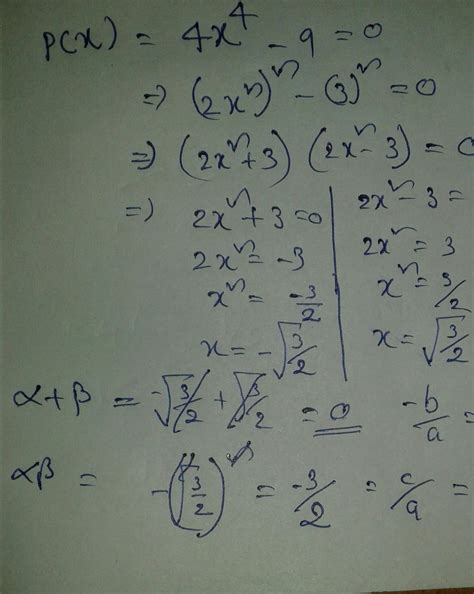 p(x) = 4x^4 - 9 = 0
⇒ (2x²)² - (3)² = 0
⇒ (2x²+3) (2x²-3) = 0
⇒) 2x²+3=0
2x² = -3
x² = -3/2
x = -√3/2
2x²-3 =
2x² = 3
x² = 3/2
x = √3/2
α+β = -√3/2 + √3/2 = 0 -b/a =
αβ = -(√3/2)² = -3/2 = c/a =